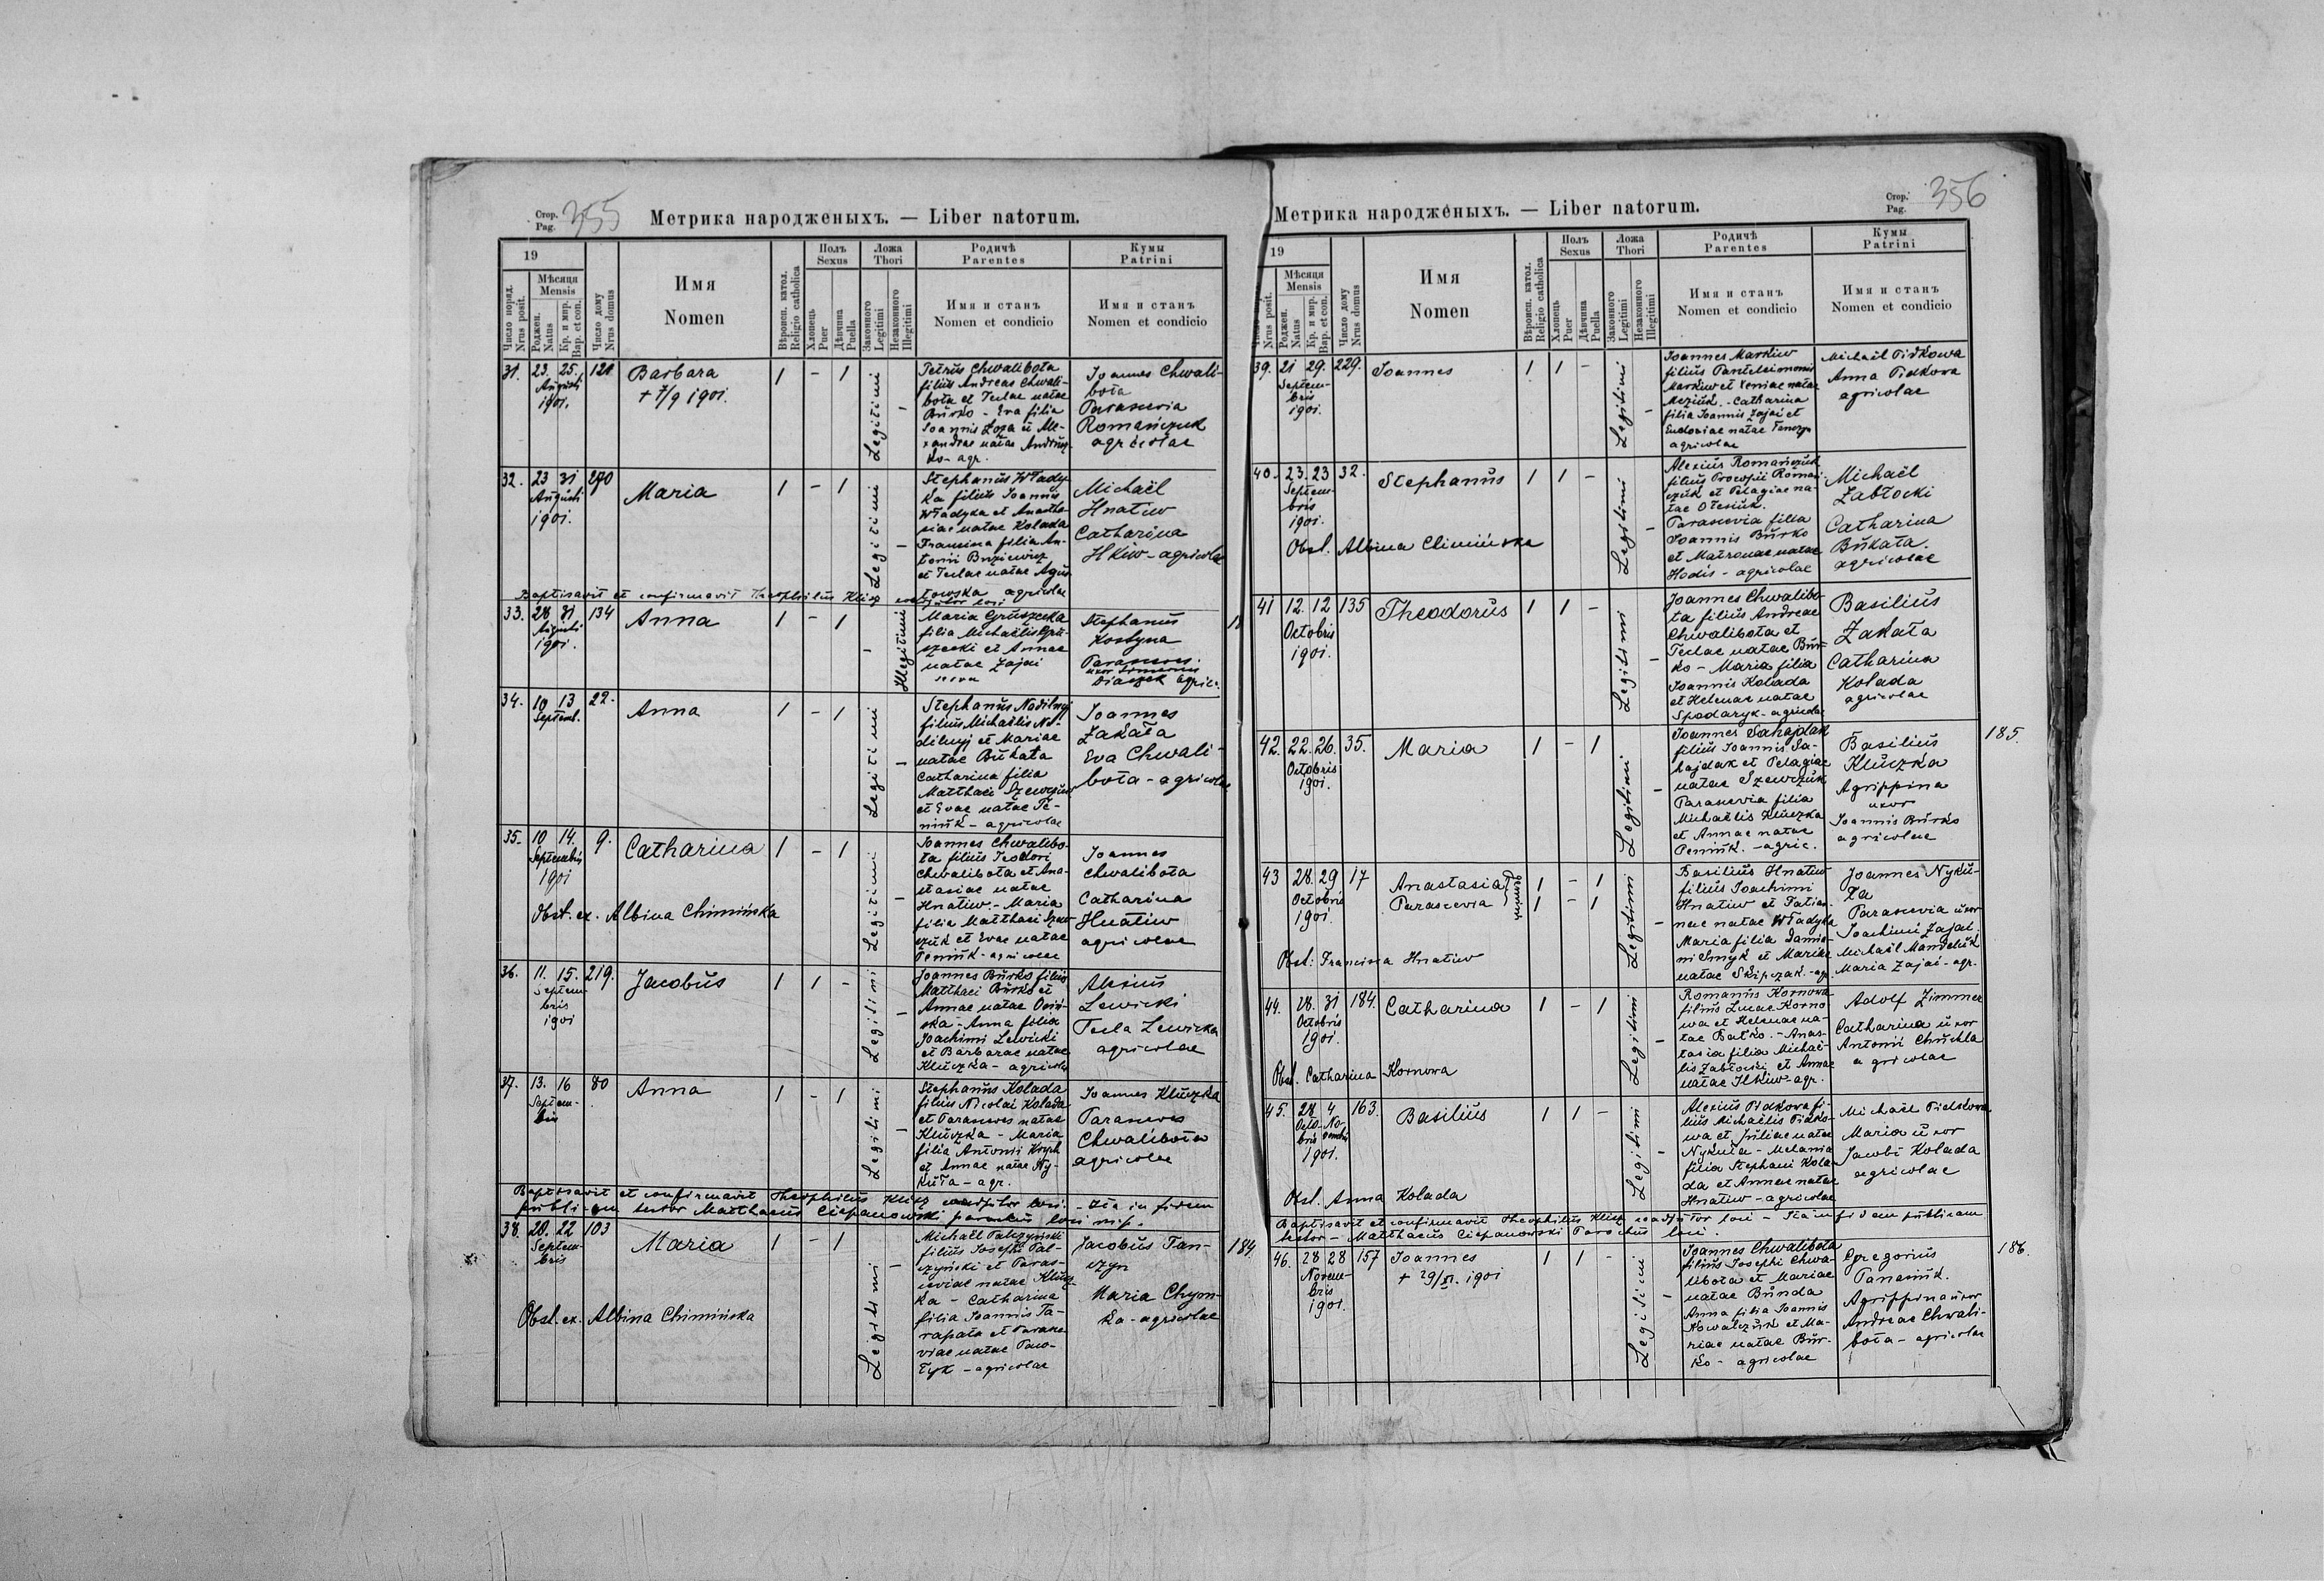 Стор.
Pag. 355
Метрика народженыхъ. — Liber natorum.
19
Мѣсяця
Mensis
Число поряд.
Nrus posit.
Роджен.
Natus
Кр. и мир.
Bap. et con.
Число дому
Nrus domus
Имя
Nomen
Вѣроисп. катол.
Religio catholica
Полъ
Sexus
Хлопець
Puer
Дѣвчина
Puella
Ложа
Thori
Законного
Legitimi
Незаконного
Illegitimi
Родичѣ
Parentes
Имя и станъ
Nomen et condicio
Кумы
Patrini
Имя и станъ
Nomen et condicio
31. 23. 25. 121 Barbara 1 - 1 Legitimi -
Augusti
1901.
+ 7/9 1901.
Petrus Chwalibota
filius Andreas Chwali-
bota et Teclae natae
Burko - Eva filia
Joannis Łoza et Ale-
xandrae natae Andrusz-
ko - agr.
Joannes Chwali-
bota
Parascevia
Romańczuk
agricolae
32. 23 31 270 Maria 1 - 1 Legitimi -
Augusti
1901.
Stephanus Włady-
ka filius Joannis
Władyka et Anasta-
siae natae Kolada
Francisca filia An-
tonii
et Teclae natae
agricolae
Michaël
Hnatiw
Catharina
Ilkiw - agricolae
Baptisavit et confirmavit Theophilus Klisz coadjutor loci
33. 28 31 134 Anna 1 - 1 - Illegitimi
Augusti
1901.
Maria Gruszecka
filia Michaëlis Gru-
szecki et Annae
natae Zajać
Stephanus
Kostyna
Parasceves
uxor
Diaczek agric.
34. 10 13 22. Anna 1 - 1 Legitimi -
Septemb.
Stephanus Nadilnyj
filius Michaëlis Na-
dilnyj et Mariae
natae Bukata
Catharina filia
Matthaei Szewczuk
et Evae natae Pe-
niuk - agricolae
Joannes
Zakała
Eva Chwali-
bota - agricolae
35. 10 14. 9. Catharina 1 - 1 Legitimi -
Septembris
1901
Obst. ex. Albina Chimińska
Joannes Chwalibo-
ta filius Teodori
Chwalibota et Ana-
stasiae natae
Hnatiw - Maria
filia Matthaei Szew-
czuk et Evae natae
Peniuk - agricolae
Joannes
Chwalibota
Catharina
Hnatiw
agricolae
36. 11. 15. 219. Jacobus 1 1 - Legitimi -
Septem-
bris
1901
Joannes Burko filius
Matthaei Burko et
Annae natae
- Anna filia
Joachimi Lewicki
et Barbarae natae
Kluczka - agricolae
Alexius
Lewicki
Tecla Lewicka
agricolae
37. 13. 16 80 Anna 1 - 1 Legitimi -
Septem-
bris
Stephanus Kolada
filius Nicolai Kolada
et Parasceves natae
Kluczka - Maria
filia Antonii
et Annae natae Ny-
kuła - agr.
Joannes Kluczka
Parasceves
Chwalibota
agricolae
Baptisavit et confirmavit Theophilus Klisz coadjutor loci. - Ita in fidem
publicam testor Matthaeus Ciepanowski parochus loci m.p.
38. 20. 22 103 Maria 1 - 1 Legitimi -
Septem-
bris
Obst. ex. Albina Chimińska
Michaël Palczyński
filius Josephi Pal-
czyński et Paras-
ceviae natae Klucz-
ka - Catharina
filia Joannis Ta-
rapata et Parasce-
viae natae Paw-
łyk - agricolae
Jacobus Tan-
czyn
Maria Chym-
ka - agricolae
184.
Стор.
Pag. 356
Метрика народженыхъ. — Liber natorum.
19
Мѣсяця
Mensis
Nrus posit.
Роджен.
Natus
Кр. и мир.
Bap. et con.
Число дому
Nrus domus
Имя
Nomen
Вѣроисп. катол.
Religio catholica
Полъ
Sexus
Хлопець
Puer
Дѣвчина
Puella
Ложа
Thori
Законного
Legitimi
Незаконного
Illegitimi
Родичѣ
Parentes
Имя и станъ
Nomen et condicio
Кумы
Patrini
Имя и станъ
Nomen et condicio
39. 21 29. 229. Joannes 1 1 - Legitimi -
Septem-
bris
1901.
Joannes Markiw
filius Panteleimonis
Markiw et Xeniae natae
Meziuk. - Catharina
filia Joannis Zajać et
Eudoxiae natae Tanczyn
agricolae
Michaël Pidkowa
Anna Pidkowa
agricolae
40. 23. 23 32. Stephanus 1 1 - Legitimi -
Septem-
bris
1901.
Obst. Albina Chimińska
Alexius Romańczuk
filius Procopii Romań-
czuk et Pelagiae na-
tae Ołesiuk.
Parascevia filia
Joannis Burko
et Matronae natae
Hodis - agricolae
Michaël
Zabłocki
Catharina
Bukata.
agricolae
41 12. 12 135 Theodorus 1 1 - Legitimi -
Octobris
1901.
Joannes Chwalibo-
ta filius Andreae
Chwalibota et
Teclae natae Bur-
ko - Maria filia
Joannis Kolada
et Helenae natae
Spodaryk - agricolae
Basilius
Zakała
Catharina
Kolada
agricolae
42. 22. 26. 35. Maria 1 - 1 Legitimi -
Octobris
1901.
Joannes Sahajdak
filius Joannis Sa-
hajdak et Pelagiae
natae Szewczuk
Parascevia filia
Michaëlis Kluczka
et Annae natae
Peniuk. - agric.
Basilius
Kluczka
Agrippina
uxor
Joannis Burko
agricolae
185.
43 28. 29 17 Anastasia 1 - 1 Legitimi -
Parascevia 1 - 1
gemini
Octobris
1901.
Obst: Francisca Hnatiw
Basilius Hnatiw
filius Joachimi
Hnatiw et Tatia-
nae natae Władyka
Maria filia Damia-
ni Smyk et Mariae
natae Skipczak. - agr.
Joannes Nyku-
ła
Parascevia uxor
Joachimi Zajać.
Michaël Mandeluk
Maria Zajać - agr.
44. 28. 31 184. Catharina 1 - 1 Legitimi -
Octobris
1901.
Obst. Catharina Kornowa
Romanus Kornowa
filius Lucae Korno-
wa et Helenae na-
tae Bałko. - Anas-
tasia filia Michaë-
lis Zabłocki et Annae
natae Ilkiw - agr.
Adolf Zimmer
Catharina uxor
Antonii Chuchla
agricolae
45. 28 4 163. Basilius 1 1 - Legitimi -
Octo- No-
bris vembris
1901.
Obst. Anna Kolada
Alexius Pidkowa fi-
lius Michaëlis Pidko-
wa et Juliae natae
Nykuła - Melania
filia Stephani Kola-
da et Annae natae
Hnatiw - agricolae
Michaël Pidkowa
Maria uxor
Jacobi Kolada
agricolae
Baptisavit et confirmavit Theophilus Klisz coadjutor loci - Ita in fidem publicam
testor - Matthaeus Ciepanowski Parochus loci.
46. 28 28 157 Joannes 1 1 - Legitimi -
Novem-
bris
1901.
+ 29/XI. 1901
Joannes Chwalibota
filius Josephi Chwa-
libota et Mariae
natae Bunda
Anna filia Joannis
Kowalczuk et Ma-
riae natae Bur-
ko - agricolae
Gregorius
Panasiuk.
Agrippina uxor
Andreae Chwali-
bota - agricolae
186.